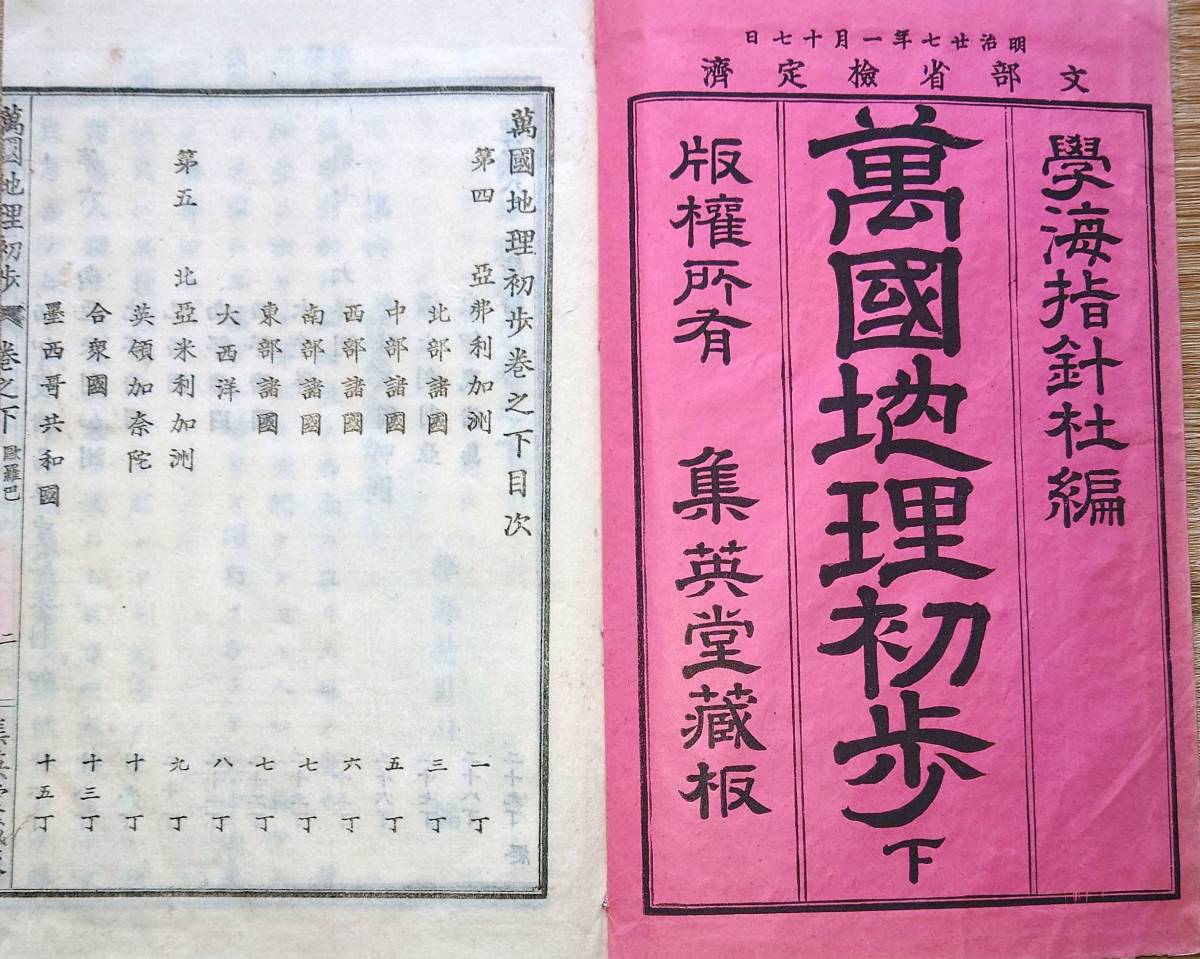 明治廿七年一月十七日
文部省檢定濟
學海指針社編
萬國地理初步下
版權所有 集英堂藏板
萬國地理初步卷之下目次
第四 亞弗利加洲 一丁
北部諸國 三丁
中部諸國 五丁
西部諸國 六丁
南部諸國 七丁
東部諸國 七丁
大西洋 八丁
第五 北亞米利加洲 九丁
英領加奈陀 十丁
合衆國 十三丁
墨西哥共和國 十五丁
萬國地理初步 卷之下 歐羅巴 二